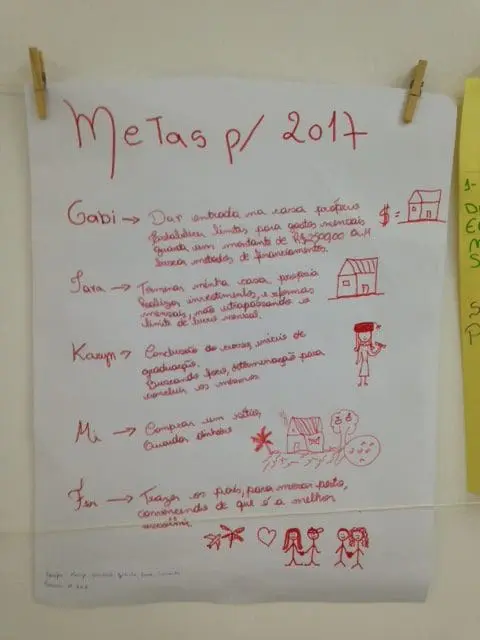 Metas p/ 2017
Gabi → Dar entrada na casa própria
Estabelecer limites para gastos mensais
guarda um montante de R$2500,00 ao M
busca metodos de financiamentos.
$ =
Iara → Terminar minha casa própria
Realizar investimentos, e reformas
mensais, não ultrapassando o
limite de lucro mensal.
Karyn → Conclusão de cursos, início de
graduação.
Buscando foco, determinação para
concluir os mesmos
Mi → Comprar um sítio,
Guardar dinheiro
Fer → Trazer os pais, para morar perto,
convencendo de que é a melhor